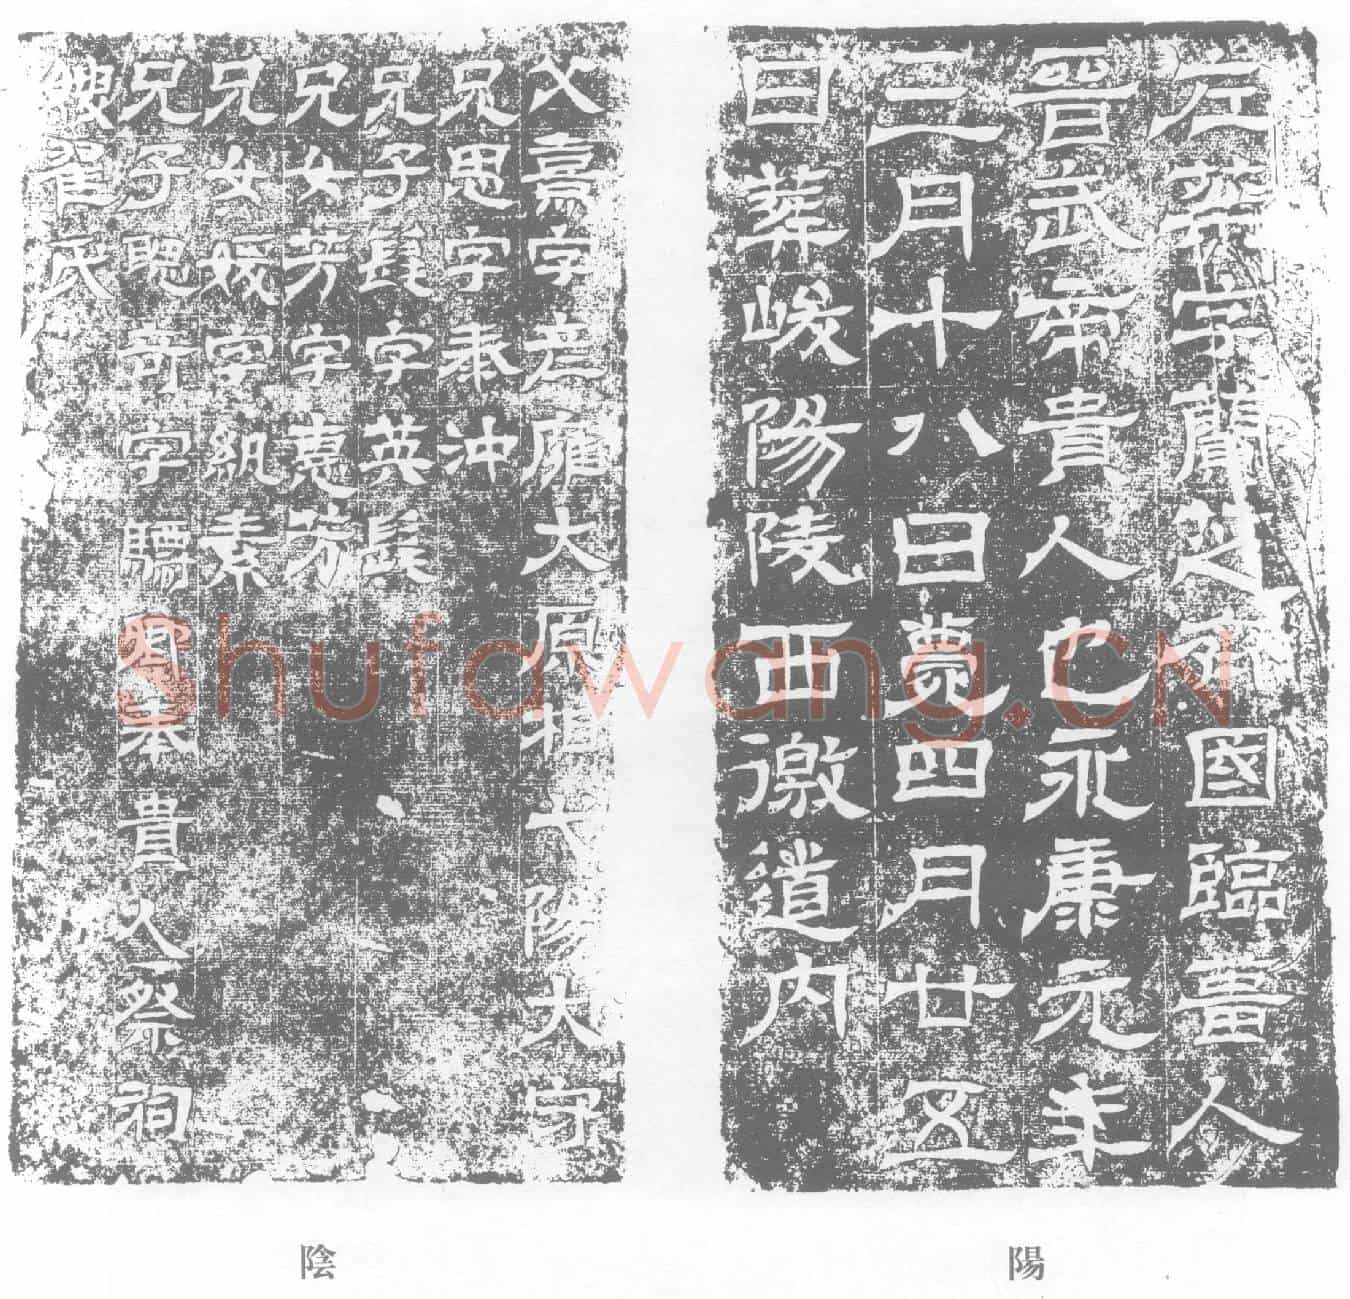 左棻字蘭芝齊國臨菑人
晉武帝貴人也永康元年
三月十八日薨四月廿五
日葬峻陽陵西徼道內
父熹字彥雍大原相弋陽大守
兄思字泰沖
兄子髦字英髦
兄女芳字惠芳
兄女媛字紈素
兄子聰奇字驃卿奉貴人祭祠
嫂翟氏
陽
陰
Shufawang.CN